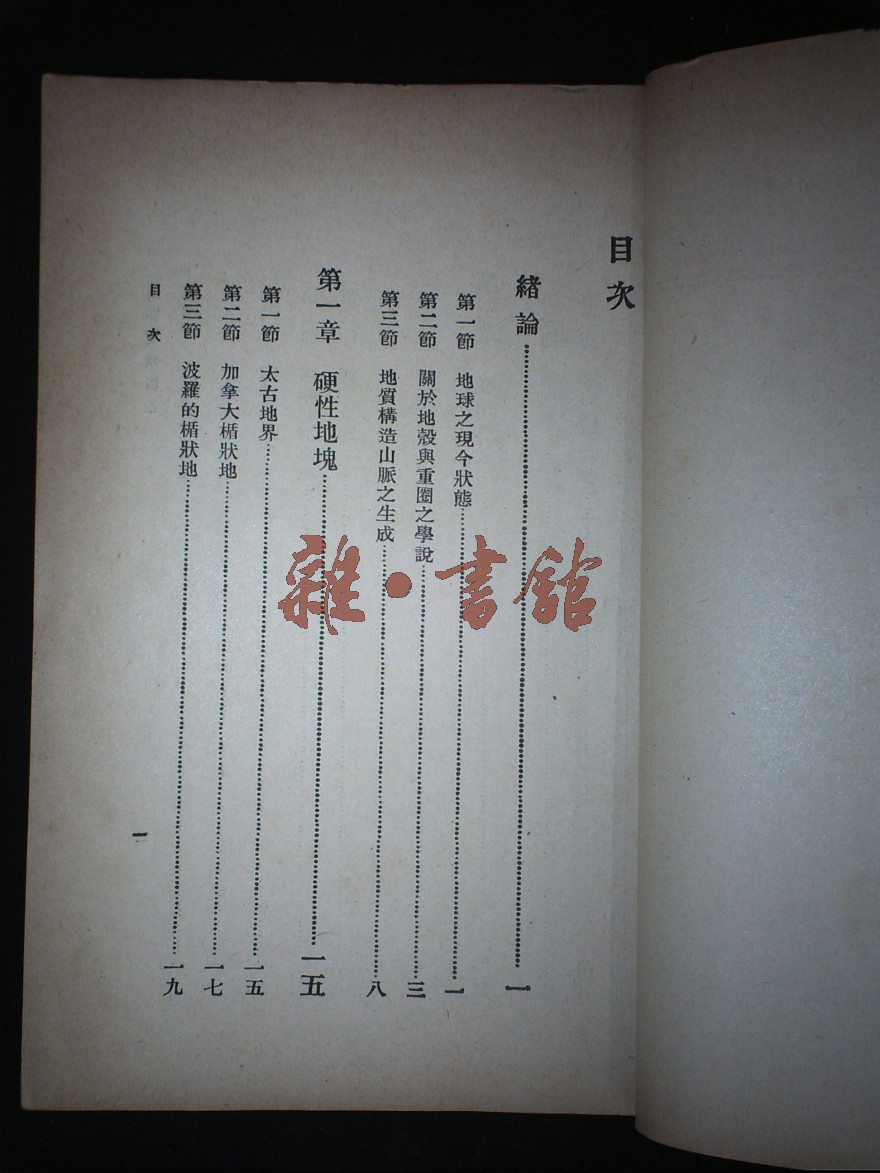 目次
緒論 一
第一節 地球之現今狀態 一
第二節 關於地殼與重圈之學說 三
第三節 地質構造山脈之生成 八
第一章 硬性地塊 一五
第一節 太古地界 一五
第二節 加拿大楯狀地 一七
第三節 波羅的楯狀地 一九
目次
一
雜·書館